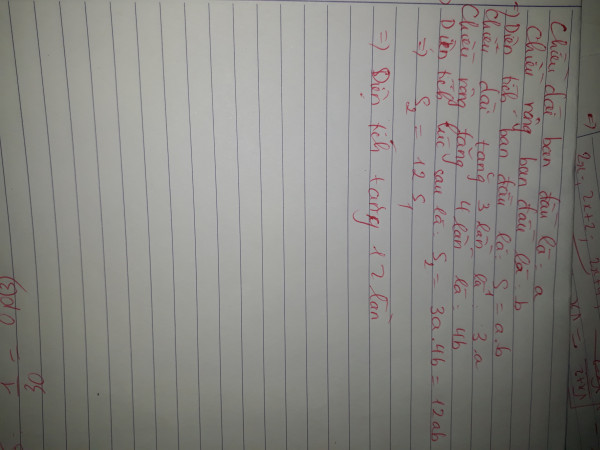 Chiều dài ban đầu là: a
Chiều rộng ban đầu là: b
=) Diện tích ban đầu là: S₁ = a.b
Chiều dài tăng 3 lần là: 3.a
Chiều rộng tăng 4 lần là: 4b
Diện tích lúc sau là: S₂ = 3a.4b = 12ab
=) S₂ = 12 S₁
=) Diện tích tăng 12 lần
1/30 = 0,0(3)